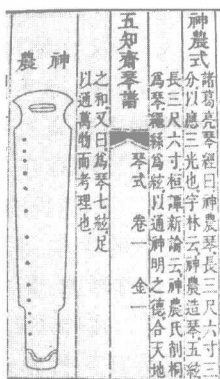 神農式
諸葛亮琴經曰神農琴長三尺六寸三
分以應三光也宇林云神農造琴五絃
長三尺六寸桓譚新論云神農氏削桐
爲琴繩絲爲絃以通神明之德合天地
五知齋琴譜 琴式 卷一 金一
之和又曰爲琴七絃足
以通萬物而考理也
神農